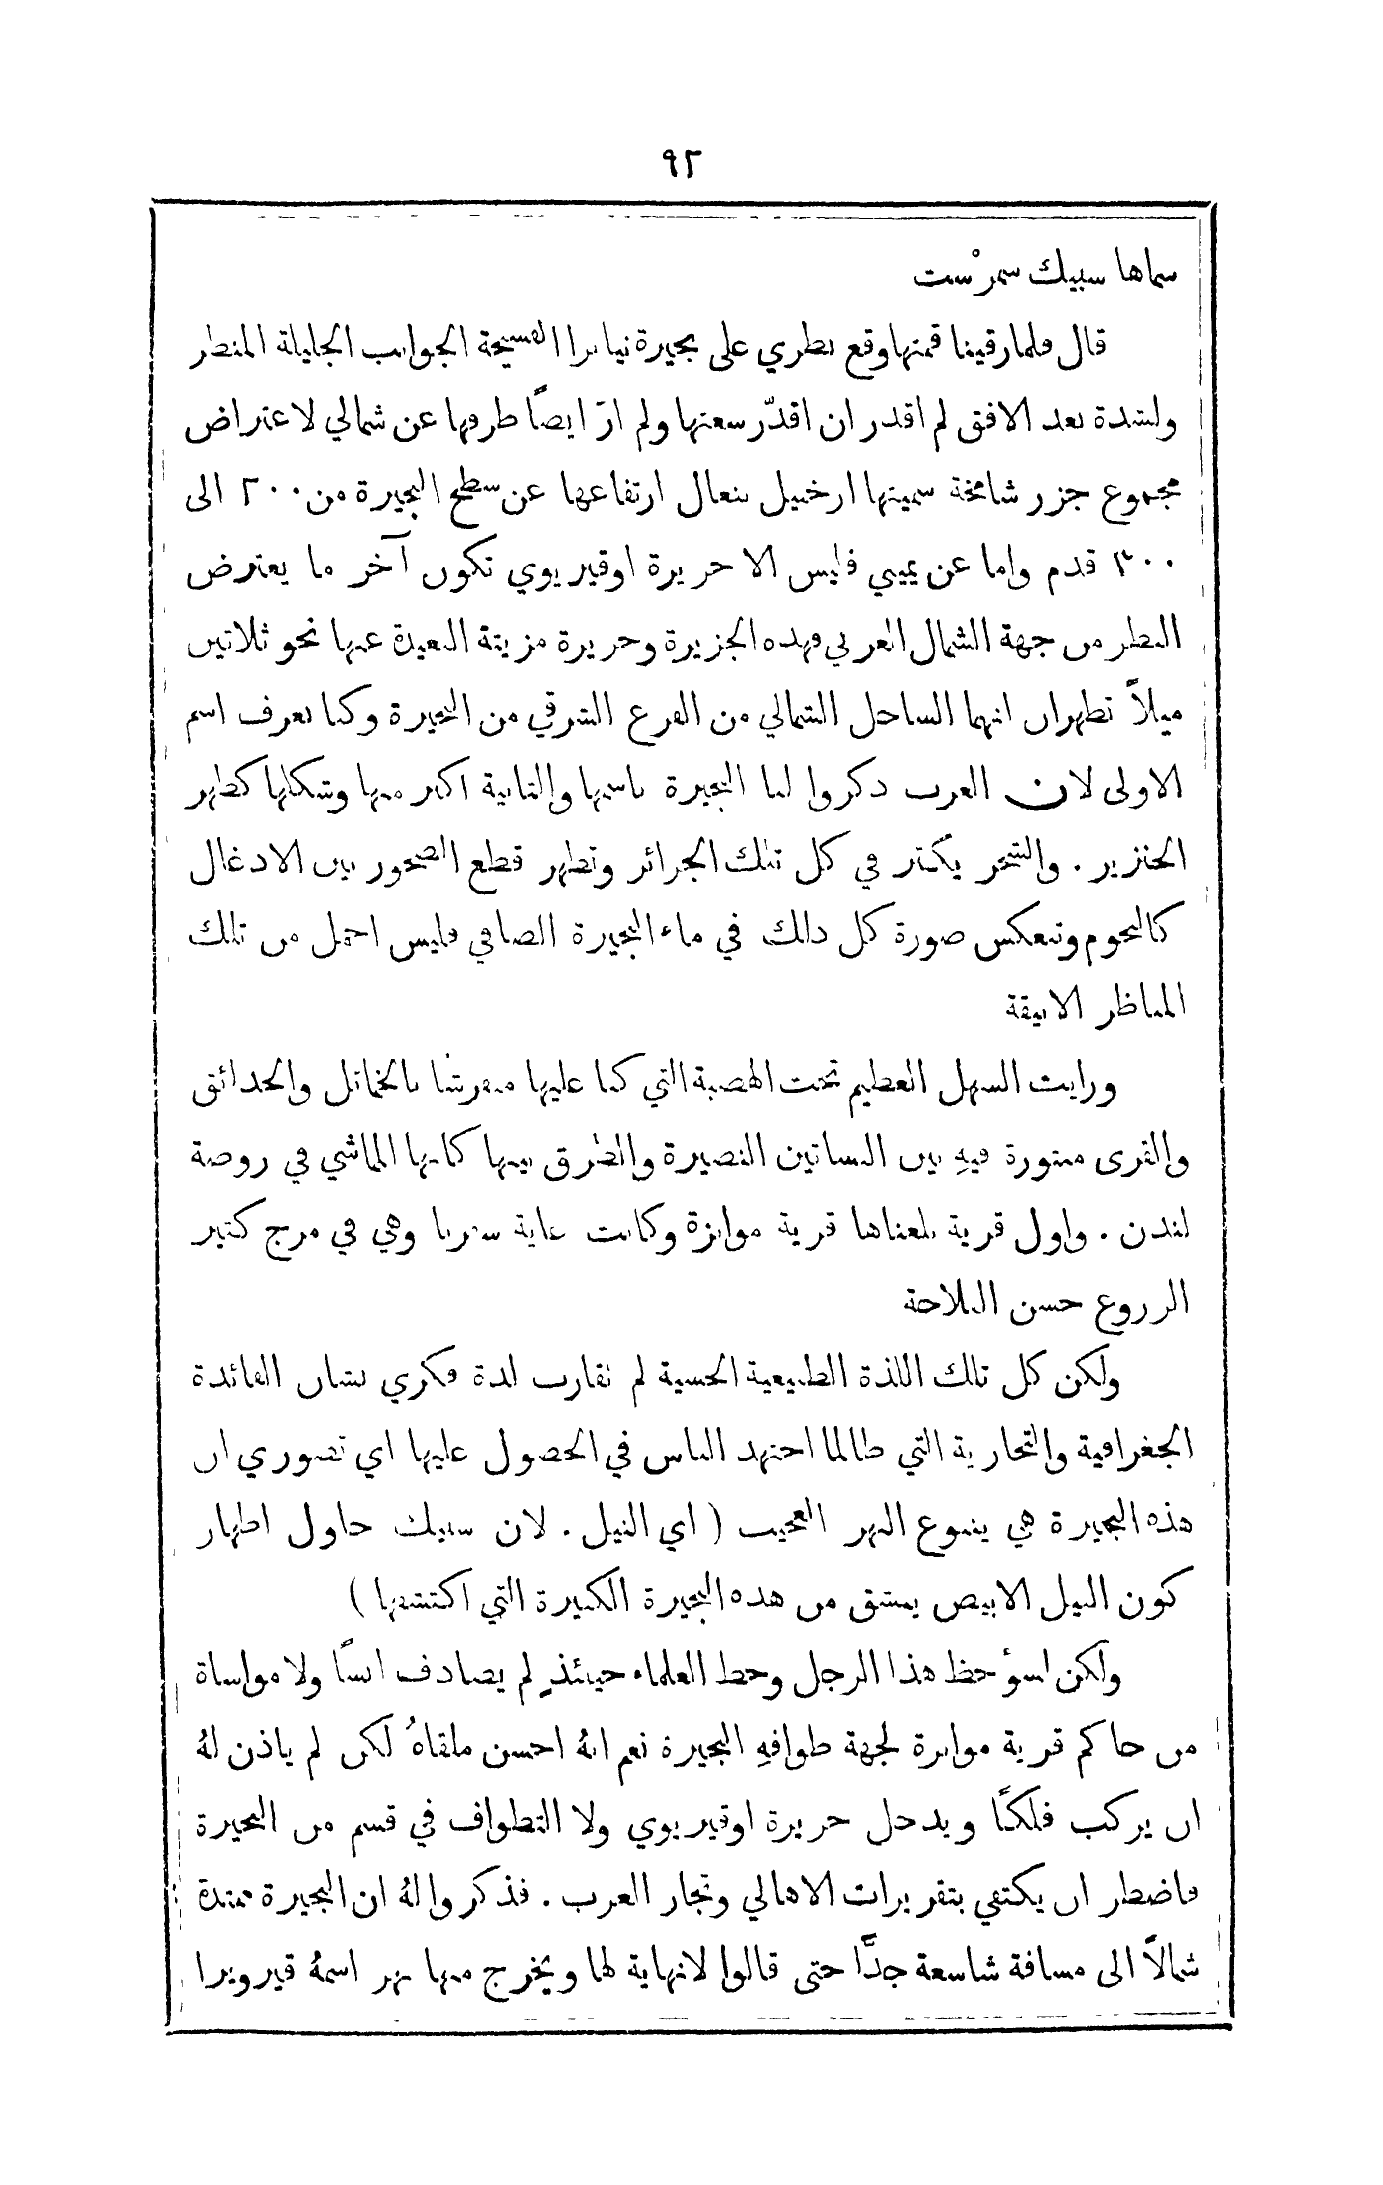 ٩٢
سماها سبيك سمرْست
قال فلما رقينا قمتها وقع نظري على بحيرة نيانزا الفسيحة الجوانب الجليلة المنظر
ولشدة بعد الافق لم اقدر ان اقدّر سعتها ولم ارَ ايضًا طرفها عن شمالي لاعتراض
مجموع جزر شامخة سميتها ارخبيل بنعال ارتفاعها عن سطح البحيرة من ٢٠٠ الى
٣٠٠ قدم واما عن يميني فليس الا جزيرة اوقيريوي تكون آخر ما يعترض
النظر من جهة الشمال الغربي فهذه الجزيرة وجزيرة مزيتة البعيدة عنها نحو ثلاثين
ميلاً تظهران انهما الساحل الشمالي من الفرع الشرقي من البحيرة وكنا نعرف اسم
الاولى لان العرب ذكروا لنا البحيرة باسمها والثانية اكبر منها وشكلها كظهر
الخنزير . والشجر يكثر في كل تلك الجزائر وتظهر قطع الصخور بين الادغال
كالنجوم وتنعكس صورة كل ذلك في ماء البحيرة الصافي فليس اجمل من تلك
المناظر الانيقة
ورايت السهل العظيم تحت الهضبة التي كنا عليها مفرشًا بالخمائل والحدائق
والقرى منثورة فيهِ بين البساتين النضيرة والطرق بينها كانها المماشي في روضة
لندن . واول قرية بلغناها قرية موانزة وكانت غاية سفرنا وهي في مرج كثير
الزروع حسن الفلاحة
ولكن كل تلك اللذة الطبيعية الحسية لم تقارب لذة فكري بشان الفائدة
الجغرافية والتجارية التي طالما اجتهد الناس في الحصول عليها اي تصوري ان
هذه البحيرة هي ينبوع النهر العجيب ( اي النيل . لان سبيك حاول اظهار
كون النيل الابيض ينبثق من هذه البحيرة الكبيرة التي اكتشفها )
ولكن لسوءِ حظ هذا الرجل وحظ العلماء حينئذٍ لم يصادف انسًا ولا مواساة
من حاكم قرية موانزة لجهة طوافهِ البحيرة نعم انهُ احسن ملقاهُ لكن لم ياذن لهُ
ان يركب فلكًا ويدخل جزيرة اوقيريوي ولا التطواف في قسم من البحيرة
فاضطر ان يكتفي بتقريرات الاهالي وتجار العرب . فذكروا لهُ ان البحيرة ممتدة
شمالاً الى مسافة شاسعة جدًّا حتى قالوا لا نهاية لها ويخرج منها نهر اسمهُ قيرويرا